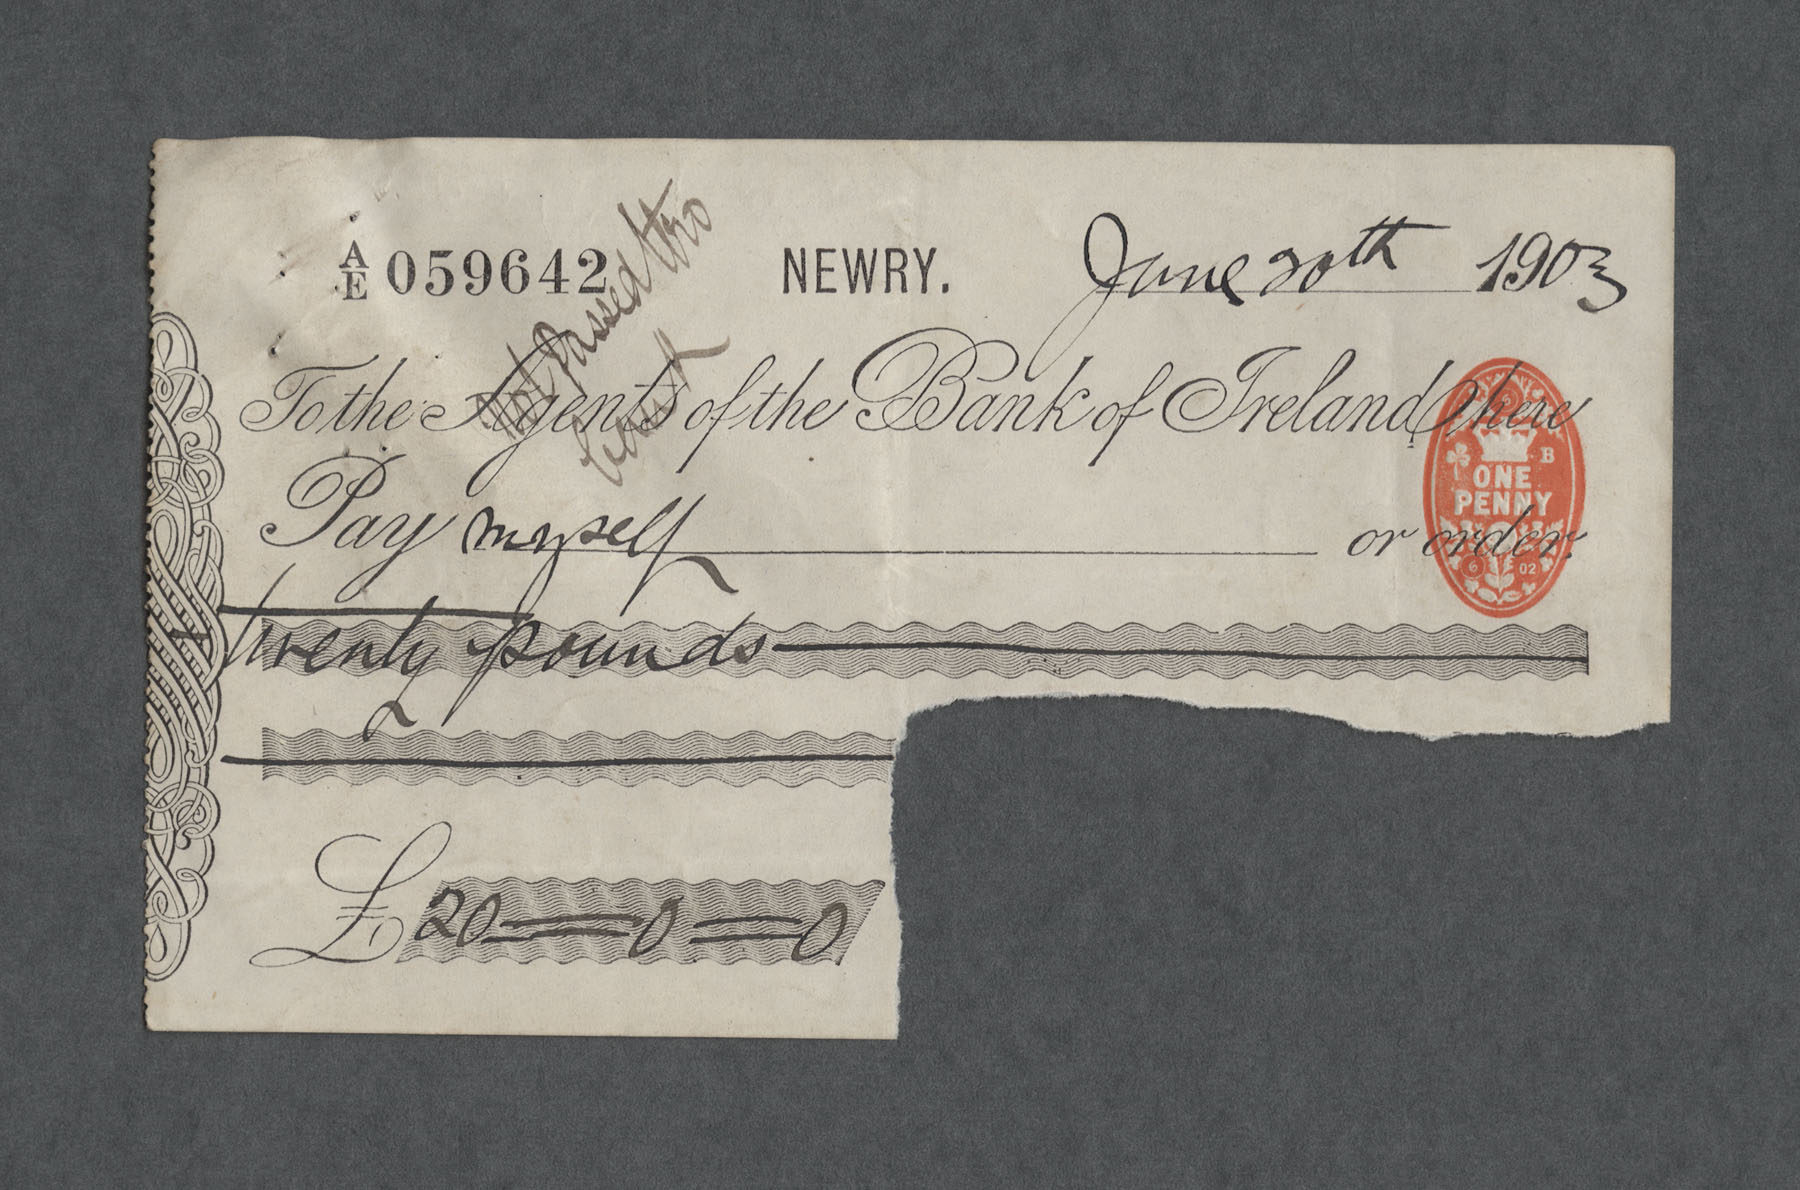 A/E 059642 NEWRY. June 20th 1903
Not passed thro
Bank
To the Agents of the Bank of Ireland here
Pay myself or order.
B
ONE
PENNY
6 02
twenty pounds
£ 20 = 0 = 0